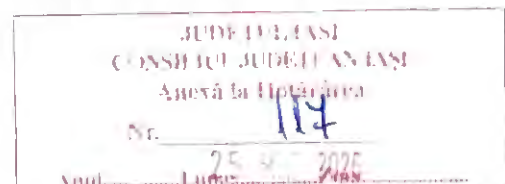 JUDEȚUL IAȘI
CONSILIUL JUDEȚEAN IAȘI
Anexă la Hotărârea
Nr. 117
25
Anul Luna